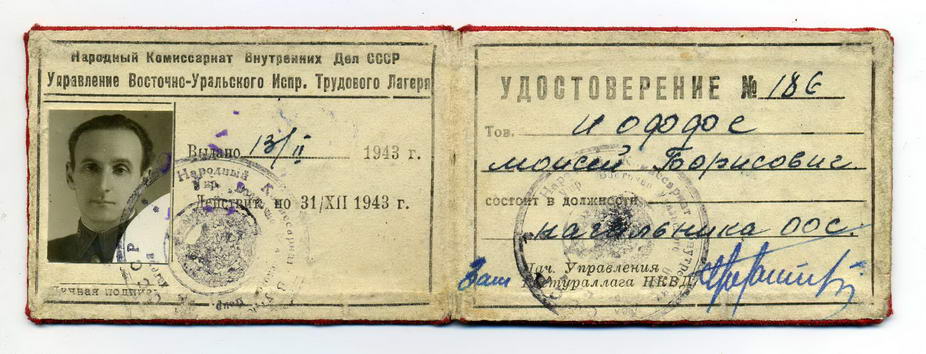 Народный Комиссариат Внутренних Дел СССР
Управление Восточно-Уральского Испр. Трудового Лагеря
Выдано 13/II 1943 г.
Действит. по 31/XII 1943 г.
Народный Комиссариат
УДОСТОВЕРЕНИЕ № 186
Тов. Иоффос
Моисей Борисович
состоит в должности
начальника ООС.
Зам Нач. Управления
НКВД